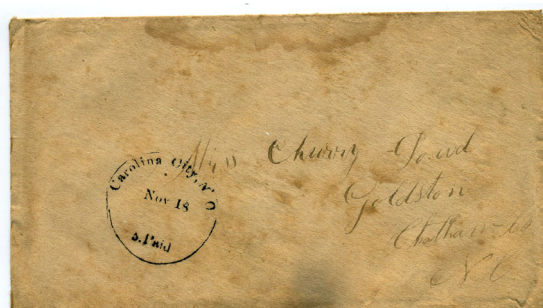 Carolina City, N C
Nov 18
5. Paid
Miss Cherry
Goldston
Chatham co
N C